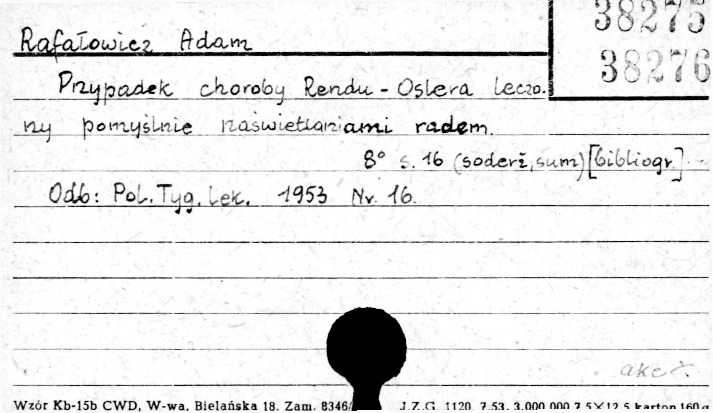 38275
Rafałowicz Adam
38276
Przypadek choroby Rendu - Oslera leczo.
ny pomyślnie naświetlaniami radem.
8° s. 16 (soderž, sum) [bibliogr.]
Odb: Pol. Tyg. Lek. 1953 Nr. 16.
akc č.
Wzór Kb-15b CWD, W-wa, Bielańska 18. Zam. 8346/ J.Z.G. 1120 7.53. 3.000.000 7,5×12,5 karton 160 g